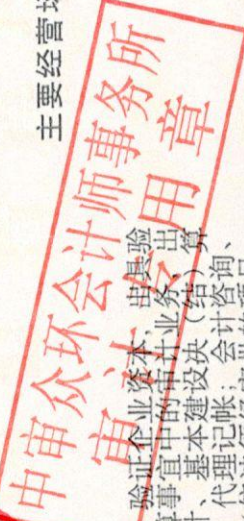 主要经营场
中审众环会计师事务所
审计专用章
验证企业资本,出具验
事宜中的审计业务,出
基本建设决(结)算
计、代理记帐;会计咨询、